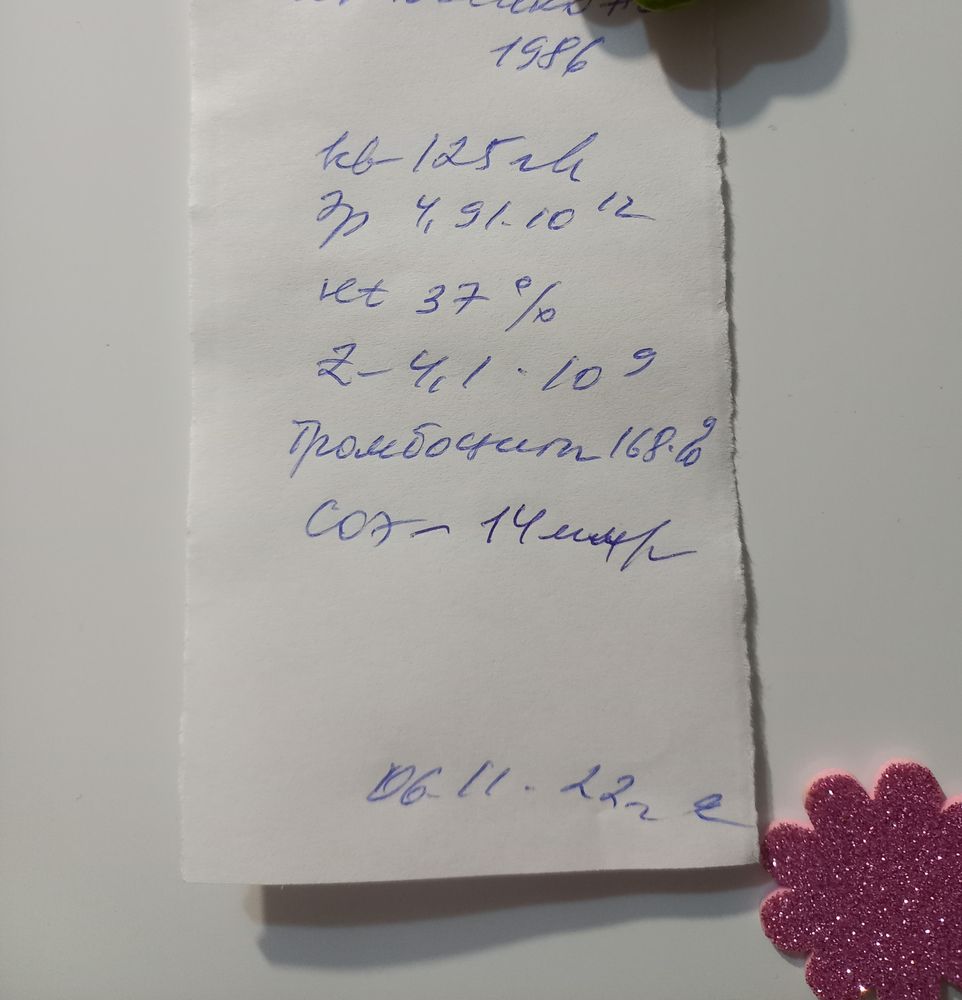 1986
Hb-125 г/л
Эр 4,91·10¹²
Ht 37 %
L- 4,1 · 10⁹
Тромбоциты 168·10⁹
СОЭ - 14 мм/ч
06.11.22г